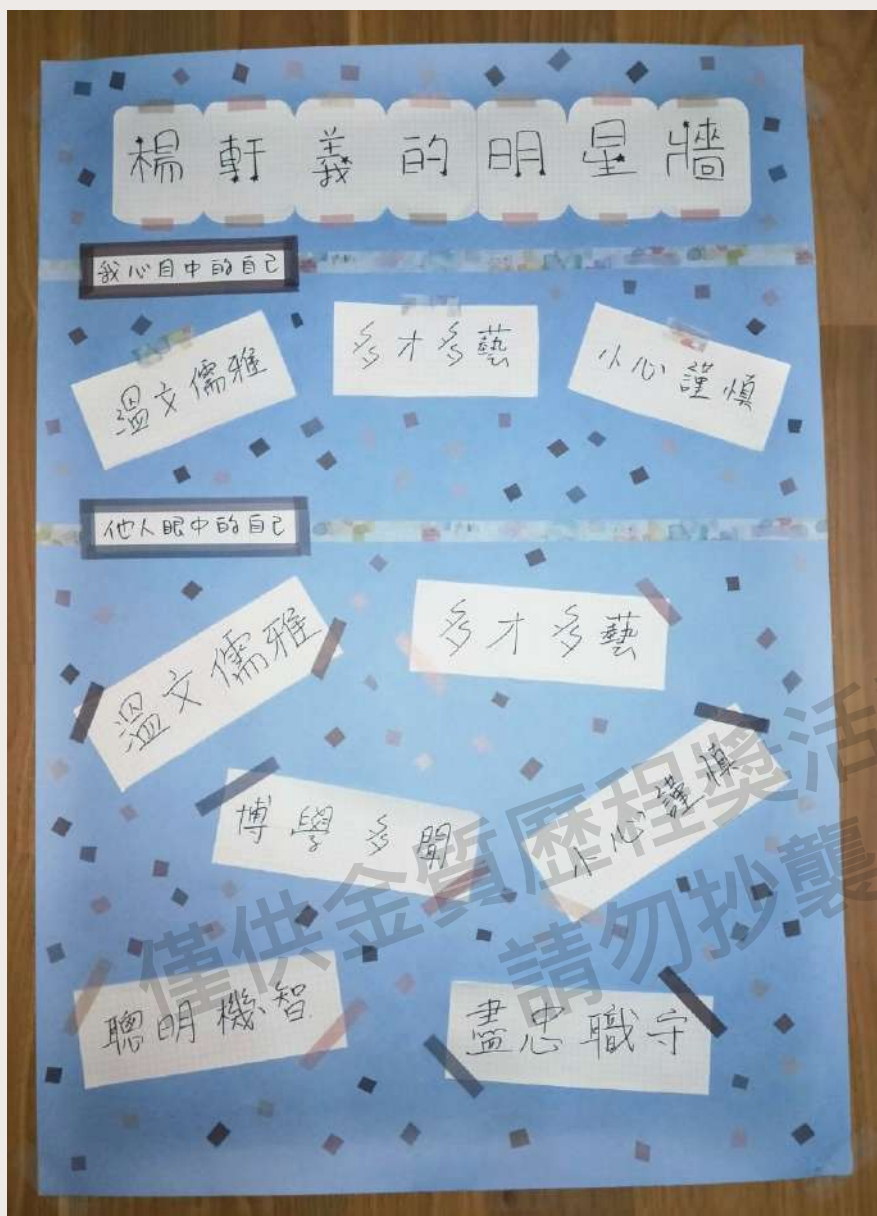 楊軒義的明星牆
我心目中的自己
溫文儒雅
多才多藝
小心謹慎
他人眼中的自己
溫文儒雅
多才多藝
博學多聞
小心謹慎
聰明機智
盡忠職守
僅供金質歷程獎活
請勿抄襲